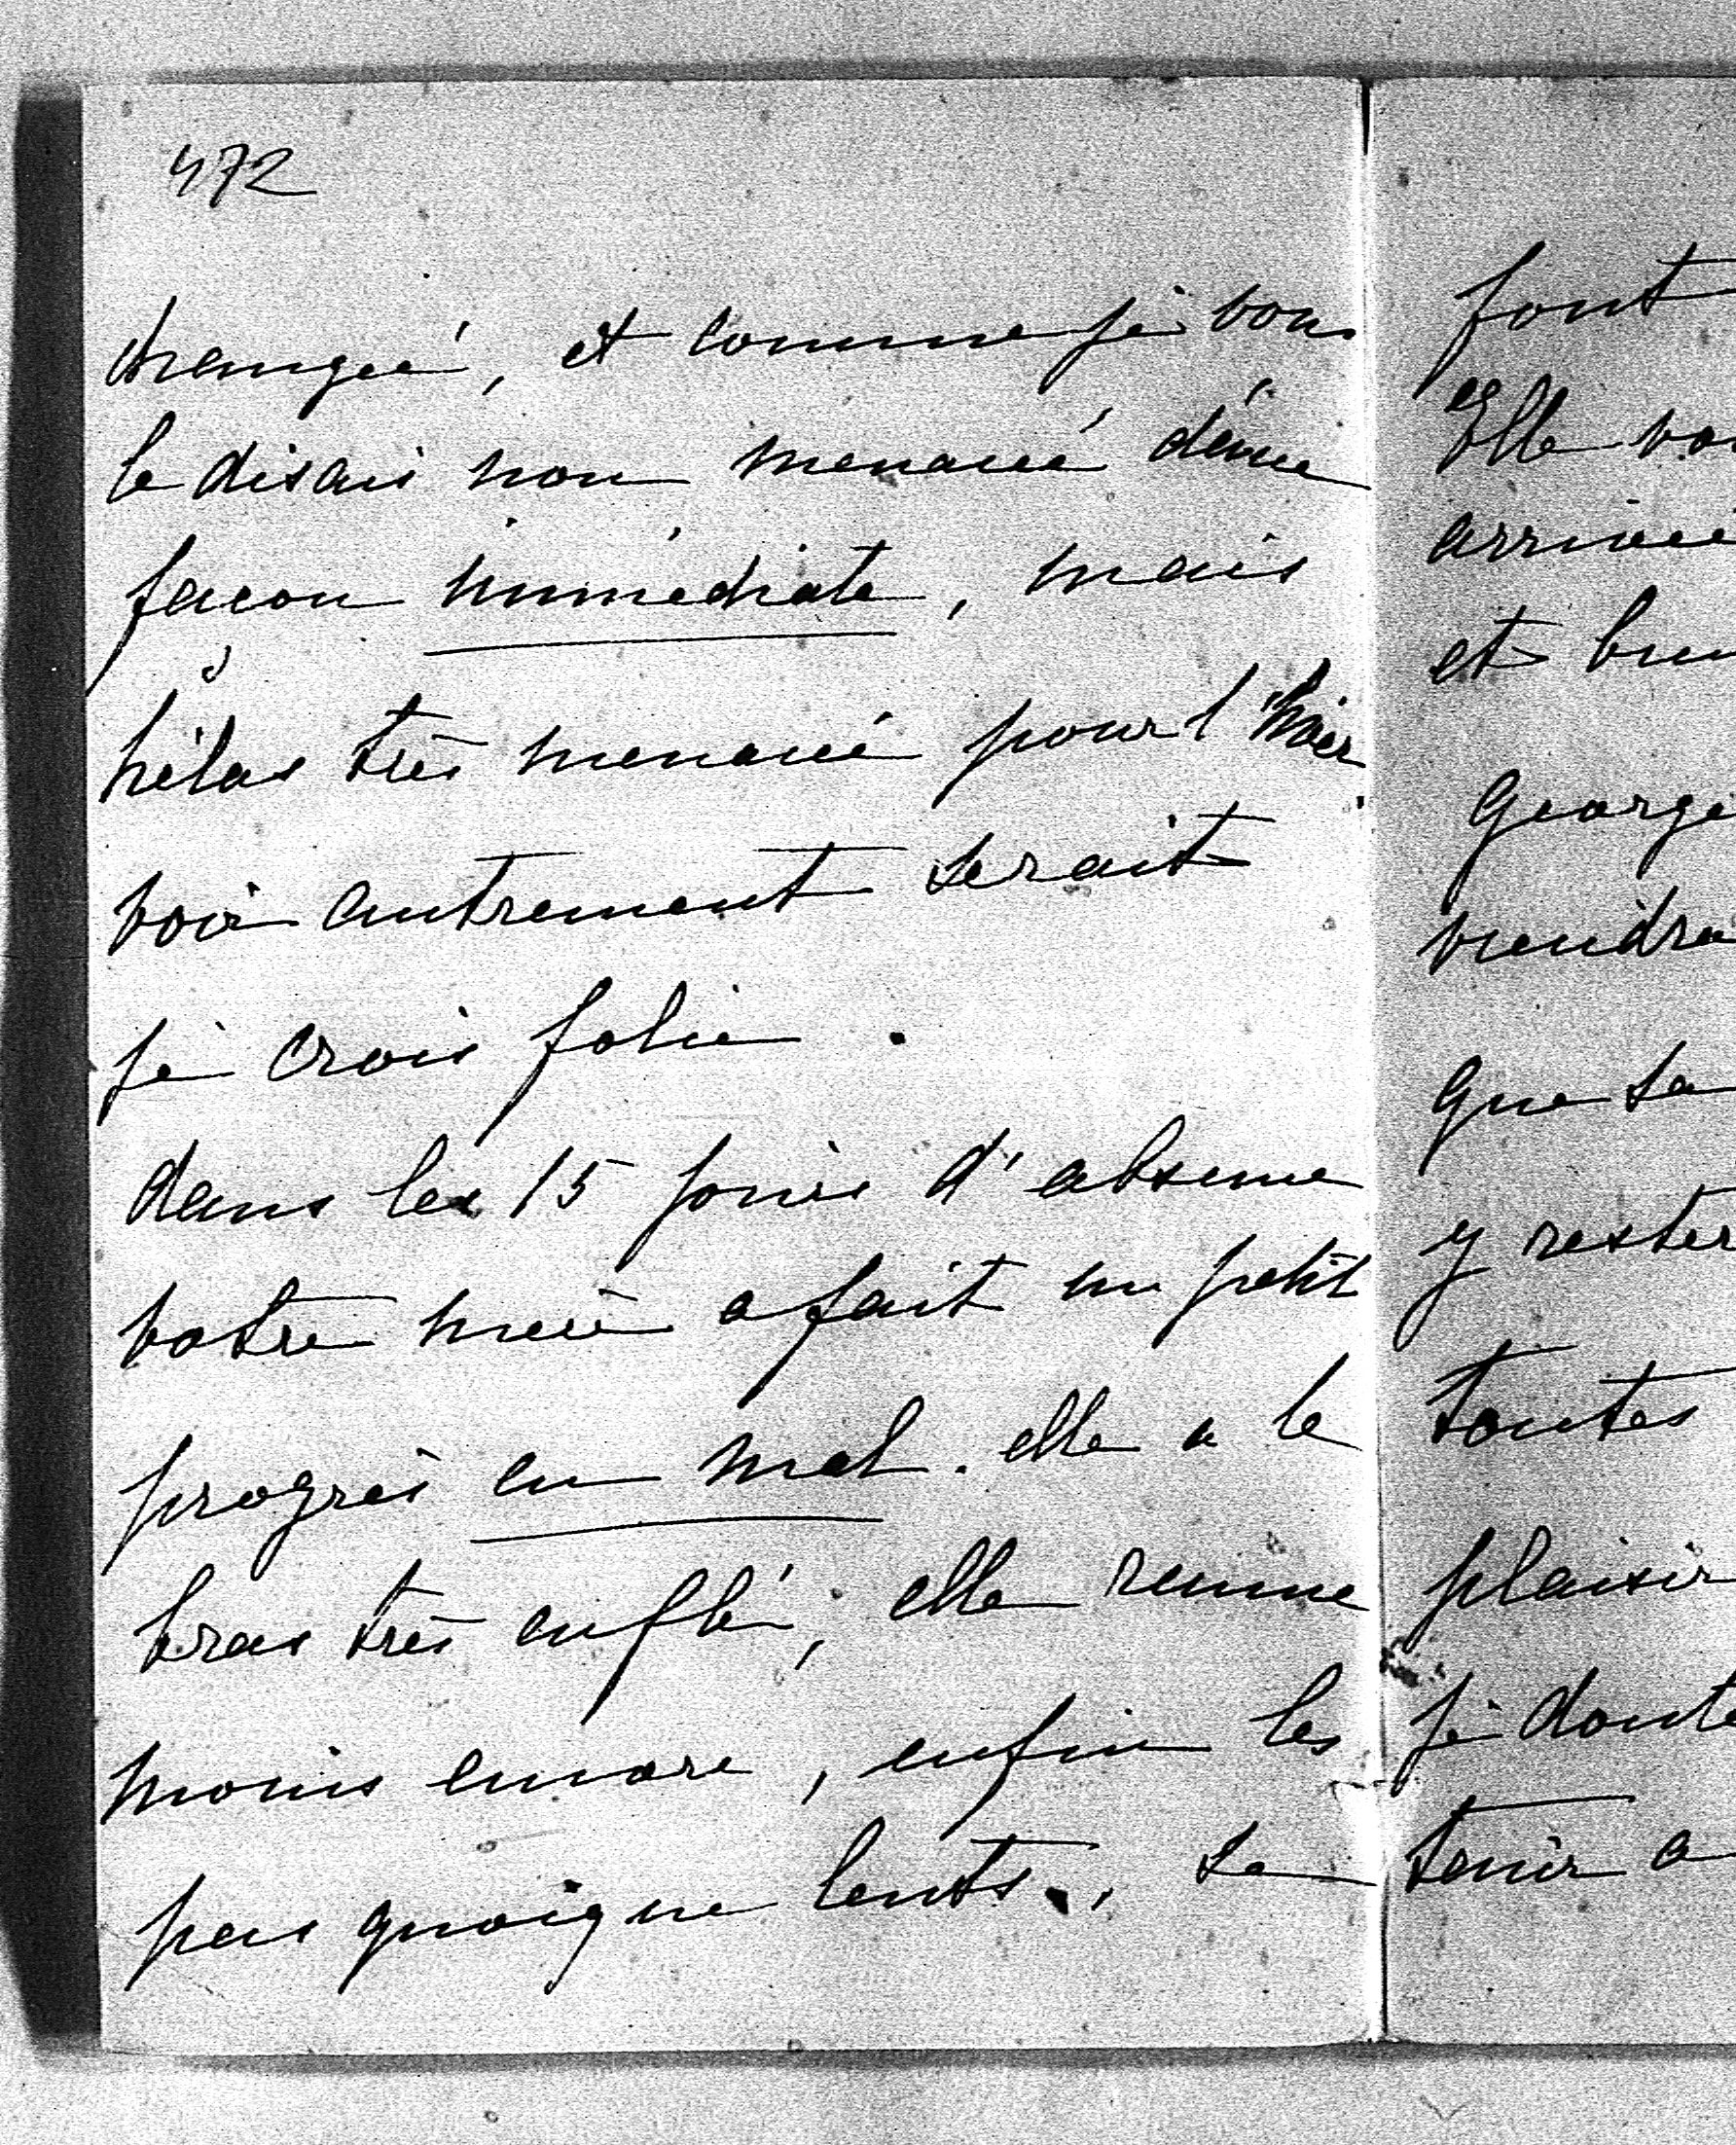 472
changée, et comme je vous
le disais non menacée d'une
façon immédiate, mais
hélas très menacée pour l'hiver
voir autrement serait
je crois folie.
dans les 15 jours d'absence
votre mère a fait un petit
progrès en mal. elle a le
bras très enflé, elle remue
moins encore, enfin les
pas quoique lents, sa
font
elle
arrivée
et
George
viendra
que sa
y rester
toutes
plaisir
je doute
tenir a